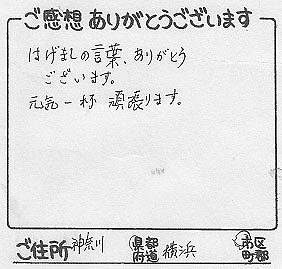 ご感想ありがとうございます
はげましの言葉、ありがとう
ございます。
元気一杯 頑張ります。
ご住所 神奈川 県都府道 横浜 市区町郡